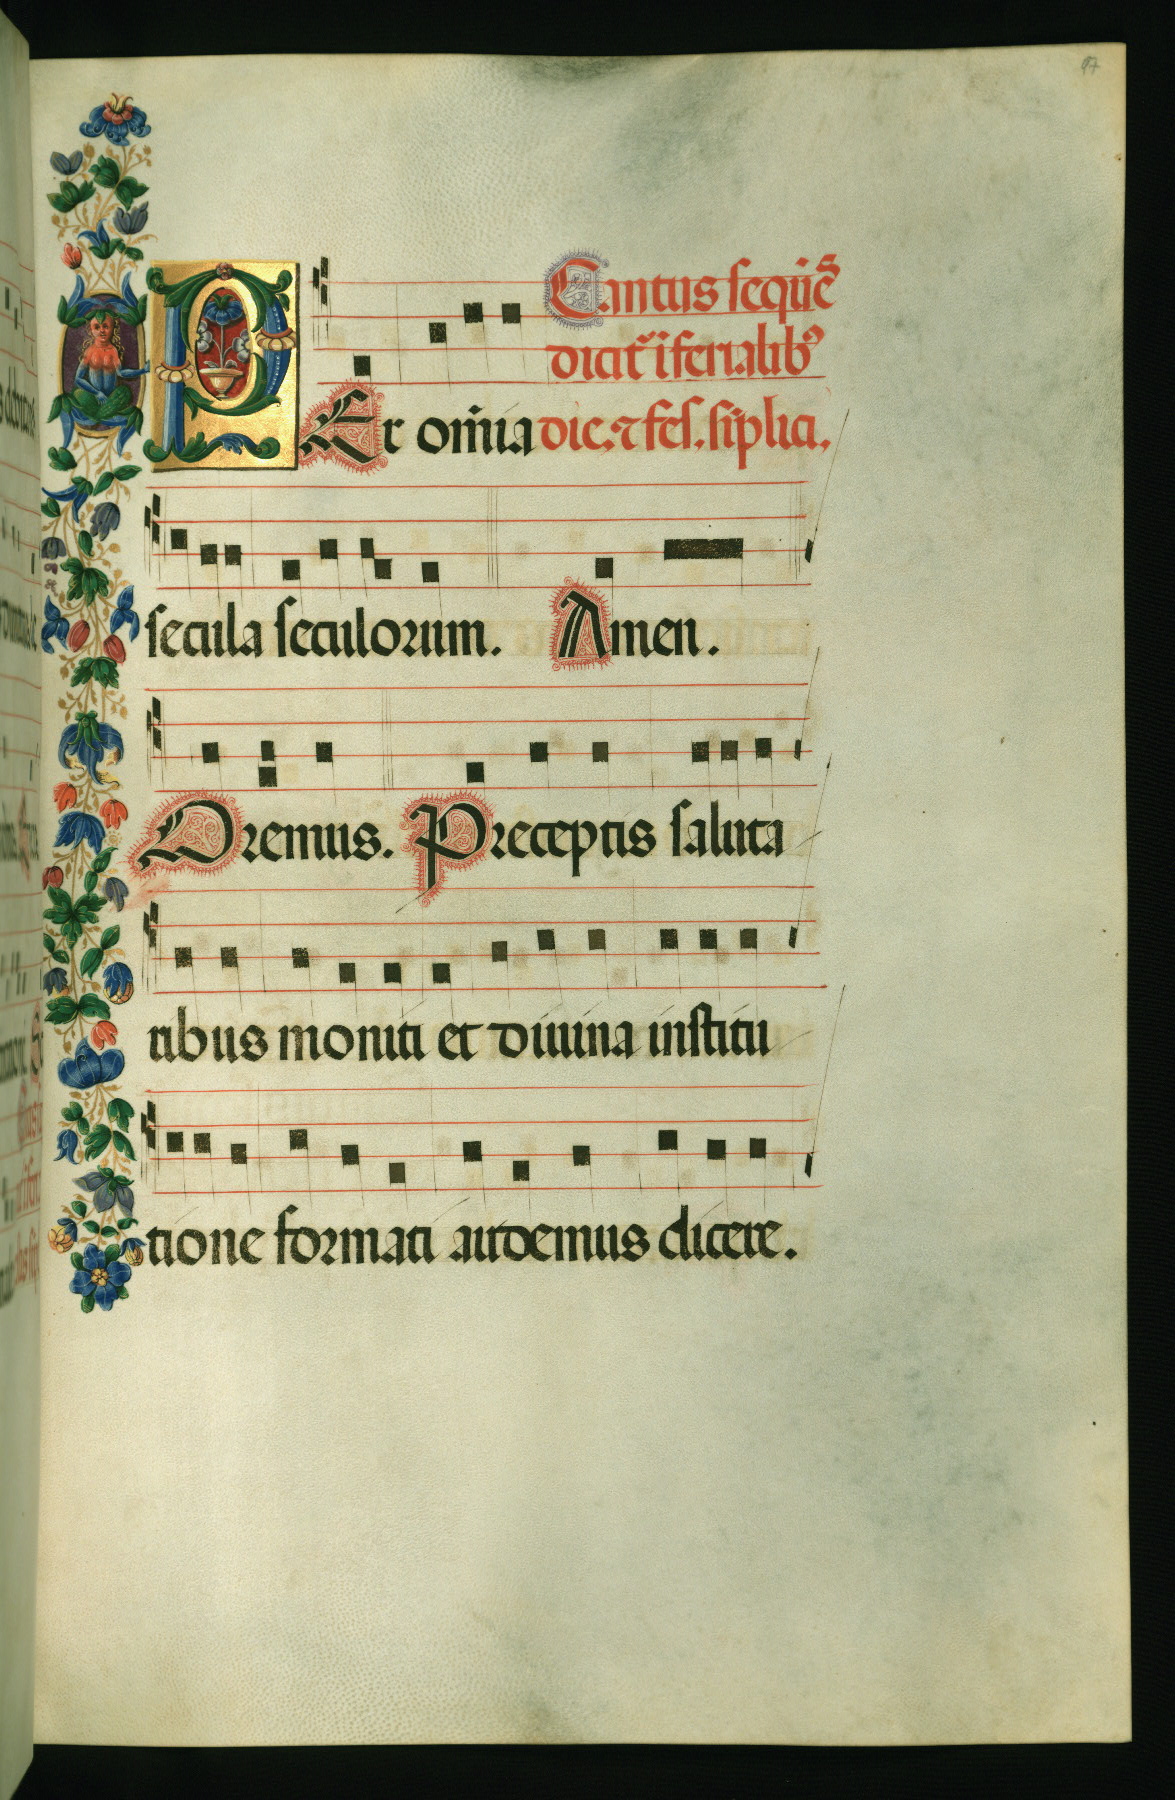 Cantus sequẽs
dicit᷑ i ferialibꝰ
PEr om̃ia dic. ⁊ fes. sĩplici.
secula seculorum. Amen.
Oremus. Preceptis saluta
ribus moniti et diuina institu
tione formati audemus dicere.